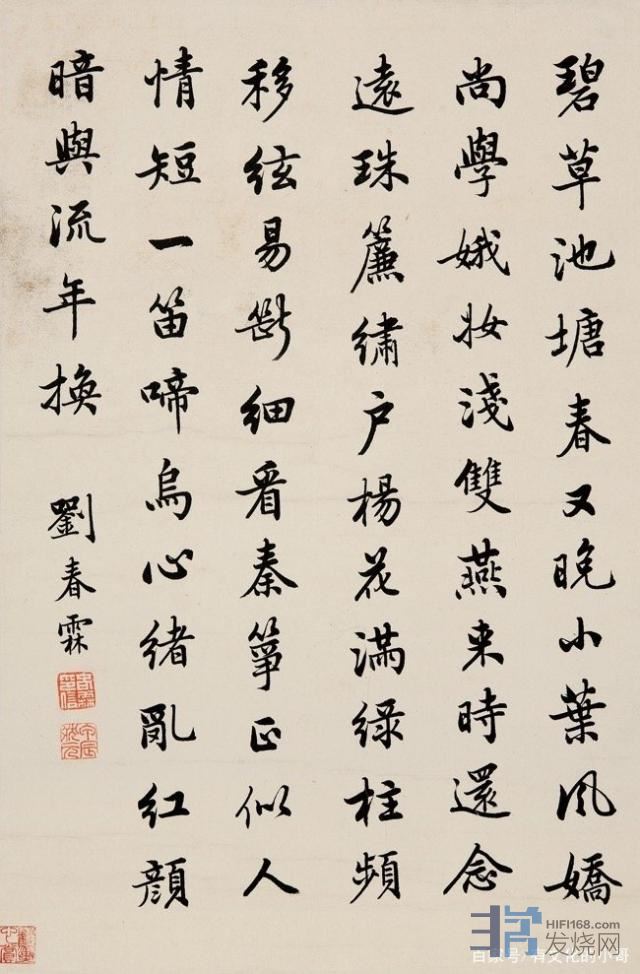 碧草池塘春又晚小葉風嬌
尚學娥妝淺雙燕来時還念
遠珠簾繡户楊花滿緑柱頻
移絃易斷细看秦箏正似人
情短一笛啼烏心緒亂紅顔
暗與流年換
劉春霖
HIFI168.com
发烧网
百家号/有文化的小哥